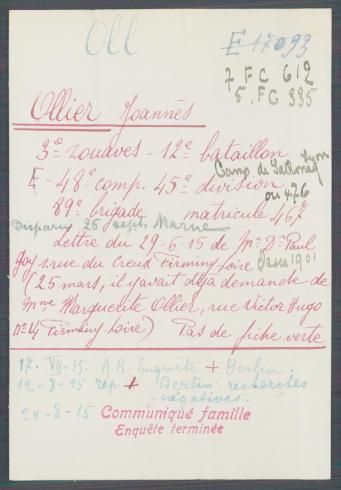 Oll
E 17093
7 FC 612
5. FG 335
Ollier Joannès
3e zouaves - 12e bataillon
Camp. de Lyon
E - 48e comp. 45e division
ou 476
89e brigade matricule 467
Disparu 25 sept. Marne
lettre du 29-6-15 de Mr Dr Paul
Goy 1 rue du Creux Firminy Loire
(25 mars, il y avait déjà demande de
Mme Marguerite Ollier, rue Victor Hugo
No 14 Firminy Loire) Pas de fiche verte
17. VII. 15. A.R. Enquête + Berlin.
12-8-15 rép. + Berlin: recherches
négatives.
24-8-15 Communiqué famille
Enquête terminée